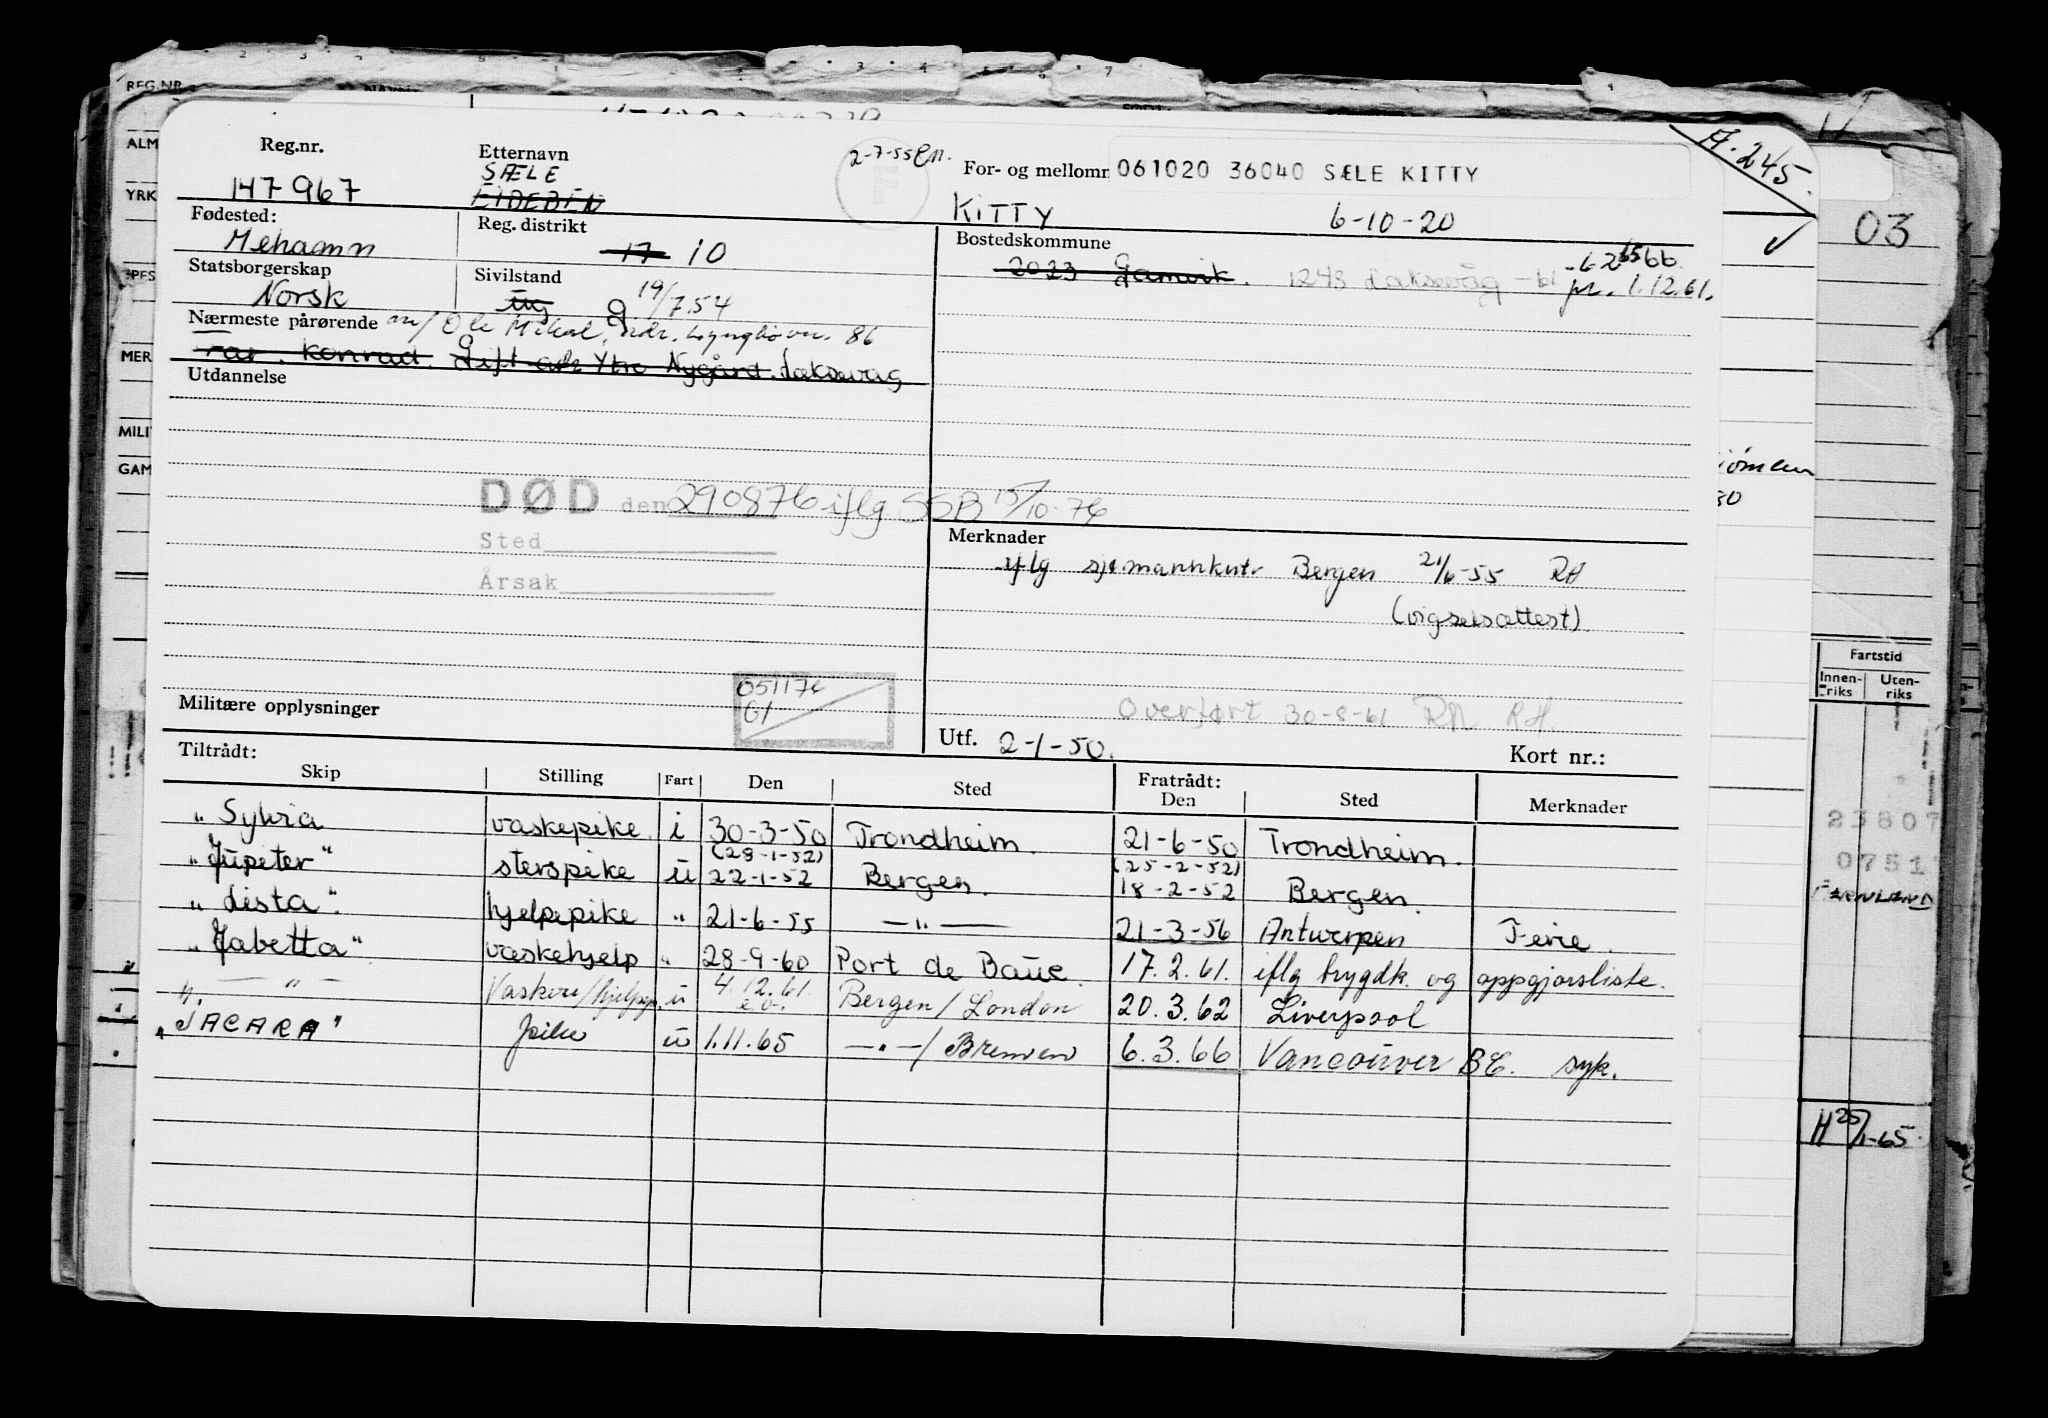 REG.NR.
A. 245.
Reg.nr. Etternavn 2-7-55 For- og mellomn 061020 36040 SÆLE KITTY
147967 SÆLE
EIDEBEN KITTY 6-10-20
Fødested: Reg. distrikt Bostedskommune
Mehamn 17 10 2023 Gamvik. 1248 Laksevåg -61 pr. 1.12.61.
Statsborgerskap Sivilstand
Norsk ug G 19/7.54
Nærmeste pårørende m/ Ole Mikal, adr. Lyngbøvn. 86
Far. Konrad. Gift adr Ytre Nygård. Laksevåg
Utdannelse
DØD den 290876 iflg. SSB 15/10-76
Sted
Årsak
Merknader
iflg sjømannkntr Bergen 21/6-55 RH
(vigselsattest).
051176
61
Overført 30-8-61 RH.
Militære opplysninger
Utf. 2-1-50. Kort nr.:
Tiltrådt: Fratrådt:
Skip Stilling Fart Den Sted Den Sted Merknader
"Sylvia vaskepike i 30-3-50 Trondheim. 21-6-50 Trondheim.
"Jupiter" sterspike u (28-1-52) 22-1-52 Bergen. (25-2-52) 18-2-52 Bergen.
"Lista". hjelpepike " 21-6-55 —"— 21-3-56 Antwerpen Ferie.
"Jabetta" vaskehjelp " 28-9-60 Port de Baue. 17.2.61. iflg trygdk. og oppgjørsliste.
—"— u 4.12.61. Bergen/London 20.3.62 Liverpool
"JACARA" pike u 1.11.65 —"—/Bremen 6.3.66 Vancouver BC. syk.
ALM
YRK
SPES
MER
MILI
GAM
03
30
Fartstid
Innen-riks Uten-riks
23807
0751
H 25/1-65.